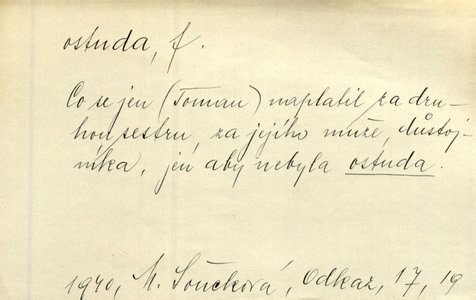 ostuda, f.
Co se jen (Toman) naplatil za dru-
hou sestru, za jejího muže, důstoj-
níka, jen aby nebyla ostuda.
1940, M. Součková, Odkaz, 17, 19